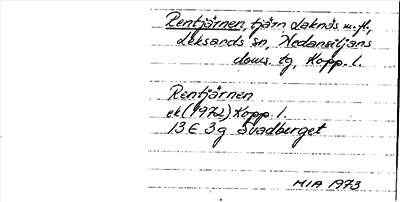 Rentjärnen, tjärn Laknäs m.fl,
Leksands sn, Nedansiljans
doms. tg, Kopp. l.
Rentjärnen
ek (1972) Kopp. l.
13 E 3 g Svadberget
MIA 1973